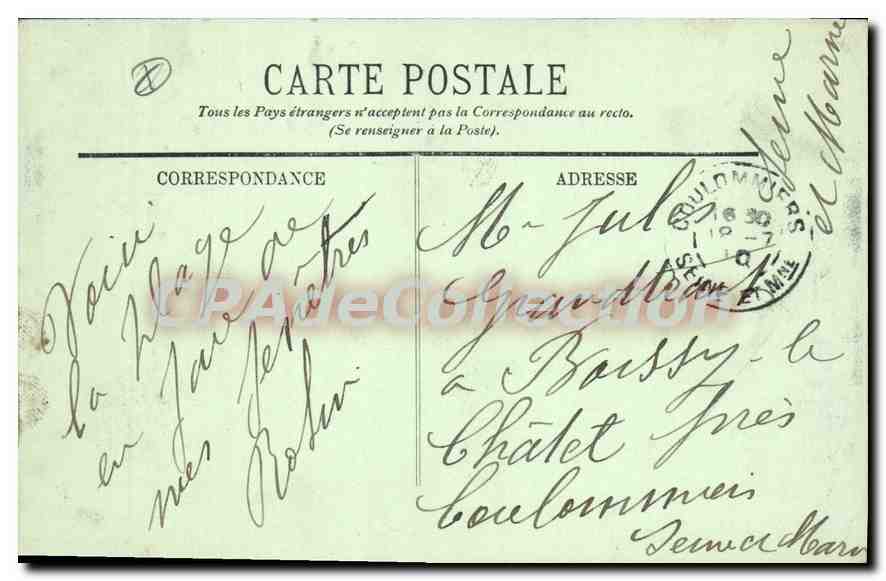 CARTE POSTALE
Tous les Pays étrangers n'acceptent pas la Correspondance au recto.
(Se renseigner à la Poste).
CORRESPONDANCE
ADRESSE
Voici
la plage
en face de
mes fenêtres
Robin
Mr Jules
a Boissy-le
Châlet près
Coulommiers
Seine et Marn
Seine
et Marne
COULOMMIERS
SEINE ET MNE
CPAdeCollection